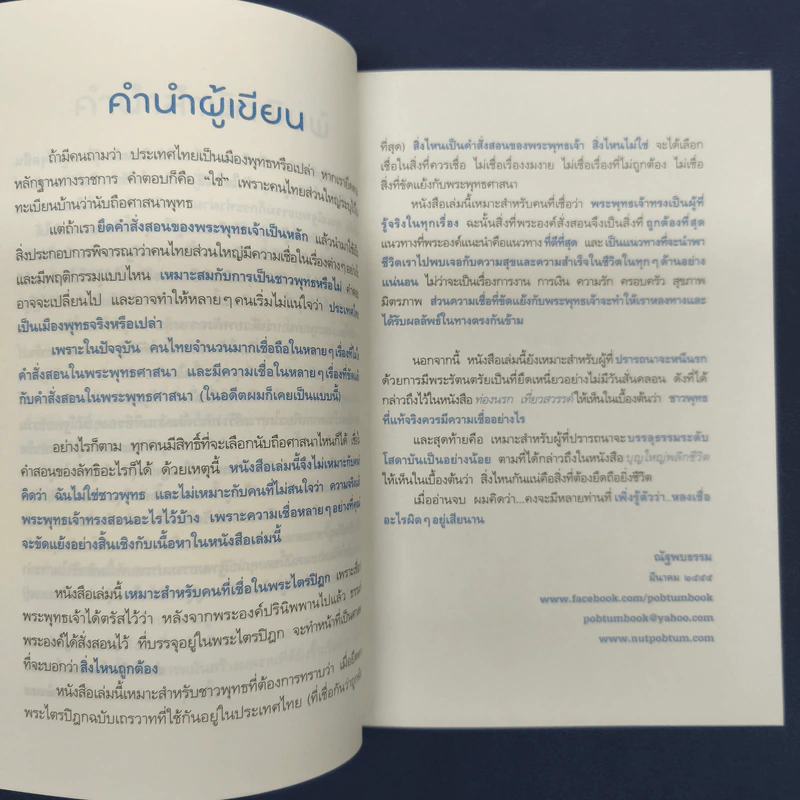 คำนำผู้เขียน
ถ้ามีคนถามว่า ประเทศไทยเป็นเมืองพุทธหรือเปล่า หากเรายึดตาม
หลักฐานทางราชการ คำตอบก็คือ “ใช่” เพราะคนไทยส่วนใหญ่ระบุไว้ใน
ทะเบียนบ้านว่านับถือศาสนาพุทธ
แต่ถ้าเรา ยึดคำสั่งสอนของพระพุทธเจ้าเป็นหลัก แล้วนำมาใช้เป็น
สิ่งประกอบการพิจารณาว่าคนไทยส่วนใหญ่มีความเชื่อในเรื่องต่างๆ
และมีพฤติกรรมแบบไหน เหมาะสมกับการเป็นชาวพุทธหรือไม่
อาจจะเปลี่ยนไป และอาจทำให้หลายๆ คนเริ่มไม่แน่ใจว่า ประเทศไทย
เป็นเมืองพุทธจริงหรือเปล่า
เพราะในปัจจุบัน คนไทยจำนวนมากเชื่อถือในหลายๆ เรื่องที่ไม่
คำสั่งสอนในพระพุทธศาสนา และมีความเชื่อในหลายๆ เรื่องที่ขัดแย้ง
กับคำสั่งสอนในพระพุทธศาสนา (ในอดีตผมก็เคยเป็นแบบนี้)
อย่างไรก็ตาม ทุกคนมีสิทธิ์ที่จะเลือกนับถือศาสนาไหนก็ได้
คำสอนของลัทธิอะไรก็ได้ ด้วยเหตุนี้ หนังสือเล่มนี้จึงไม่เหมาะกับคนที่
คิดว่า ฉันไม่ใช่ชาวพุทธ และไม่เหมาะกับคนที่ไม่สนใจว่า ความจริงแล้ว
พระพุทธเจ้าทรงสอนอะไรไว้บ้าง เพราะความเชื่อหลายๆ อย่างที่คุณ
จะขัดแย้งอย่างสิ้นเชิงกับเนื้อหาในหนังสือเล่มนี้
หนังสือเล่มนี้ เหมาะสำหรับคนที่เชื่อในพระไตรปิฎก
พระพุทธเจ้าได้ตรัสไว้ว่า หลังจากพระองค์ปรินิพพานไปแล้ว
พระองค์ได้สั่งสอนไว้ ที่บรรจุอยู่ในพระไตรปิฎก จะทำหน้าที่เป็นศาสดา
ที่จะบอกว่า สิ่งไหนถูกต้อง
หนังสือเล่มนี้เหมาะสำหรับชาวพุทธที่ต้องการทราบว่า เมื่อยึดตาม
พระไตรปิฎกฉบับเถรวาทที่ใช้กันอยู่ในประเทศไทย (ที่เชื่อกันว่าถูกต้อง
ที่สุด) สิ่งไหนเป็นคำสั่งสอนของพระพุทธเจ้า สิ่งไหนไม่ใช่ จะได้เลือก
เชื่อในสิ่งที่ควรเชื่อ ไม่เชื่อเรื่องงมงาย ไม่เชื่อเรื่องที่ไม่ถูกต้อง ไม่เชื่อ
สิ่งที่ขัดแย้งกับพระพุทธศาสนา
หนังสือเล่มนี้เหมาะสำหรับคนที่เชื่อว่า พระพุทธเจ้าทรงเป็นผู้ที่
รู้จริงในทุกเรื่อง ฉะนั้นสิ่งที่พระองค์สั่งสอนจึงเป็นสิ่งที่ ถูกต้องที่สุด
แนวทางที่พระองค์แนะนำคือแนวทาง ที่ดีที่สุด และ เป็นแนวทางที่จะนำพา
ชีวิตเราไปพบเจอกับความสุขและความสำเร็จในชีวิตในทุกๆ ด้านอย่าง
แน่นอน ไม่ว่าจะเป็นเรื่องการงาน การเงิน ความรัก ครอบครัว สุขภาพ
มิตรภาพ ส่วนความเชื่อที่ขัดแย้งกับพระพุทธเจ้าจะทำให้เราหลงทางและ
ได้รับผลลัพธ์ในทางตรงกันข้าม
นอกจากนี้ หนังสือเล่มนี้ยังเหมาะสำหรับผู้ที่ ปรารถนาจะหนีนรก
ด้วยการมีพระรัตนตรัยเป็นที่ยึดเหนี่ยวอย่างไม่มีวันสั่นคลอน ดังที่ได้
กล่าวถึงไว้ในหนังสือ ท่องนรก เที่ยวสวรรค์ ให้เห็นในเบื้องต้นว่า ชาวพุทธ
ที่แท้จริงควรมีความเชื่ออย่างไร
และสุดท้ายคือ เหมาะสำหรับผู้ที่ปรารถนาจะ บรรลุธรรมระดับ
โสดาบันเป็นอย่างน้อย ตามที่ได้กล่าวถึงในหนังสือ บุญใหญ่พลิกชีวิต
ให้เห็นในเบื้องต้นว่า สิ่งไหนกันแน่คือสิ่งที่ต้องยึดถือยิ่งชีวิต
เมื่ออ่านจบ ผมคิดว่า...คงจะมีหลายท่านที่ เพิ่งรู้ตัวว่า..หลงเชื่อ
อะไรผิดๆ อยู่เสียนาน
ณัฐพบธรรม
มีนาคม ๒๕๕๕
www.facebook.com/pobtumbook
pobtumbook@yahoo.com
www.nutpobtum.com